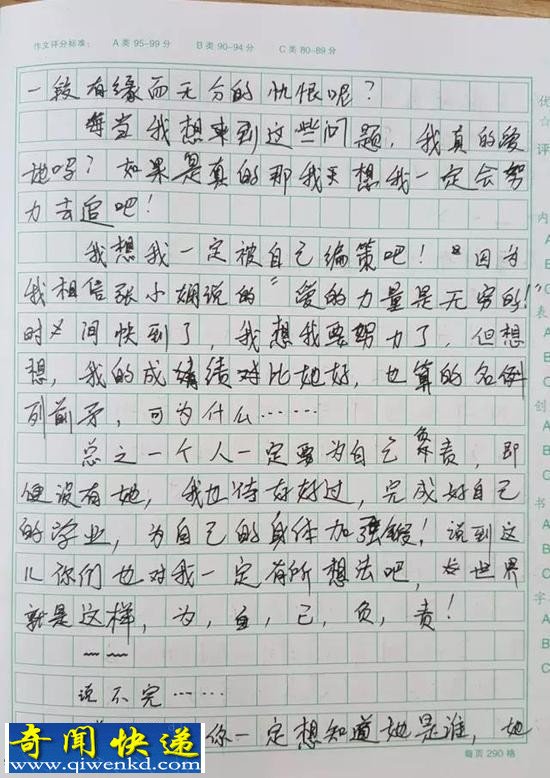 作文评分标准： A类95-99分 B类90-94分 C类80-89分
一段有缘而无分的仇恨呢？
每当我想来到这些问题，我真的爱
她吗？如果是真的那我天想我一定会努
力去追吧！
我想我一定被自己编策吧！因为
我相信张小娴说的“爱的力量是无穷的！”
时间快到了，我想我要努力了，但想
想，我的成绩对比她好，也算的名例
列前矛，可为什么……
总之一个人一定要为自己负责，即
便没有她，我也待好好过，完成好自己
的学业，为自己的身体加强锻！说到这
儿你们也对我一定有所想法吧，世界
就是这样，为，自，己，负，责！
~~
说不完……
你一定想知道她是谁，她
每页290格
优
☆
评
内
A
B
C
表
A
B
C
创
A
B
C
书
A
字
A
B
C
奇闻快递
www.qiwenkd.com